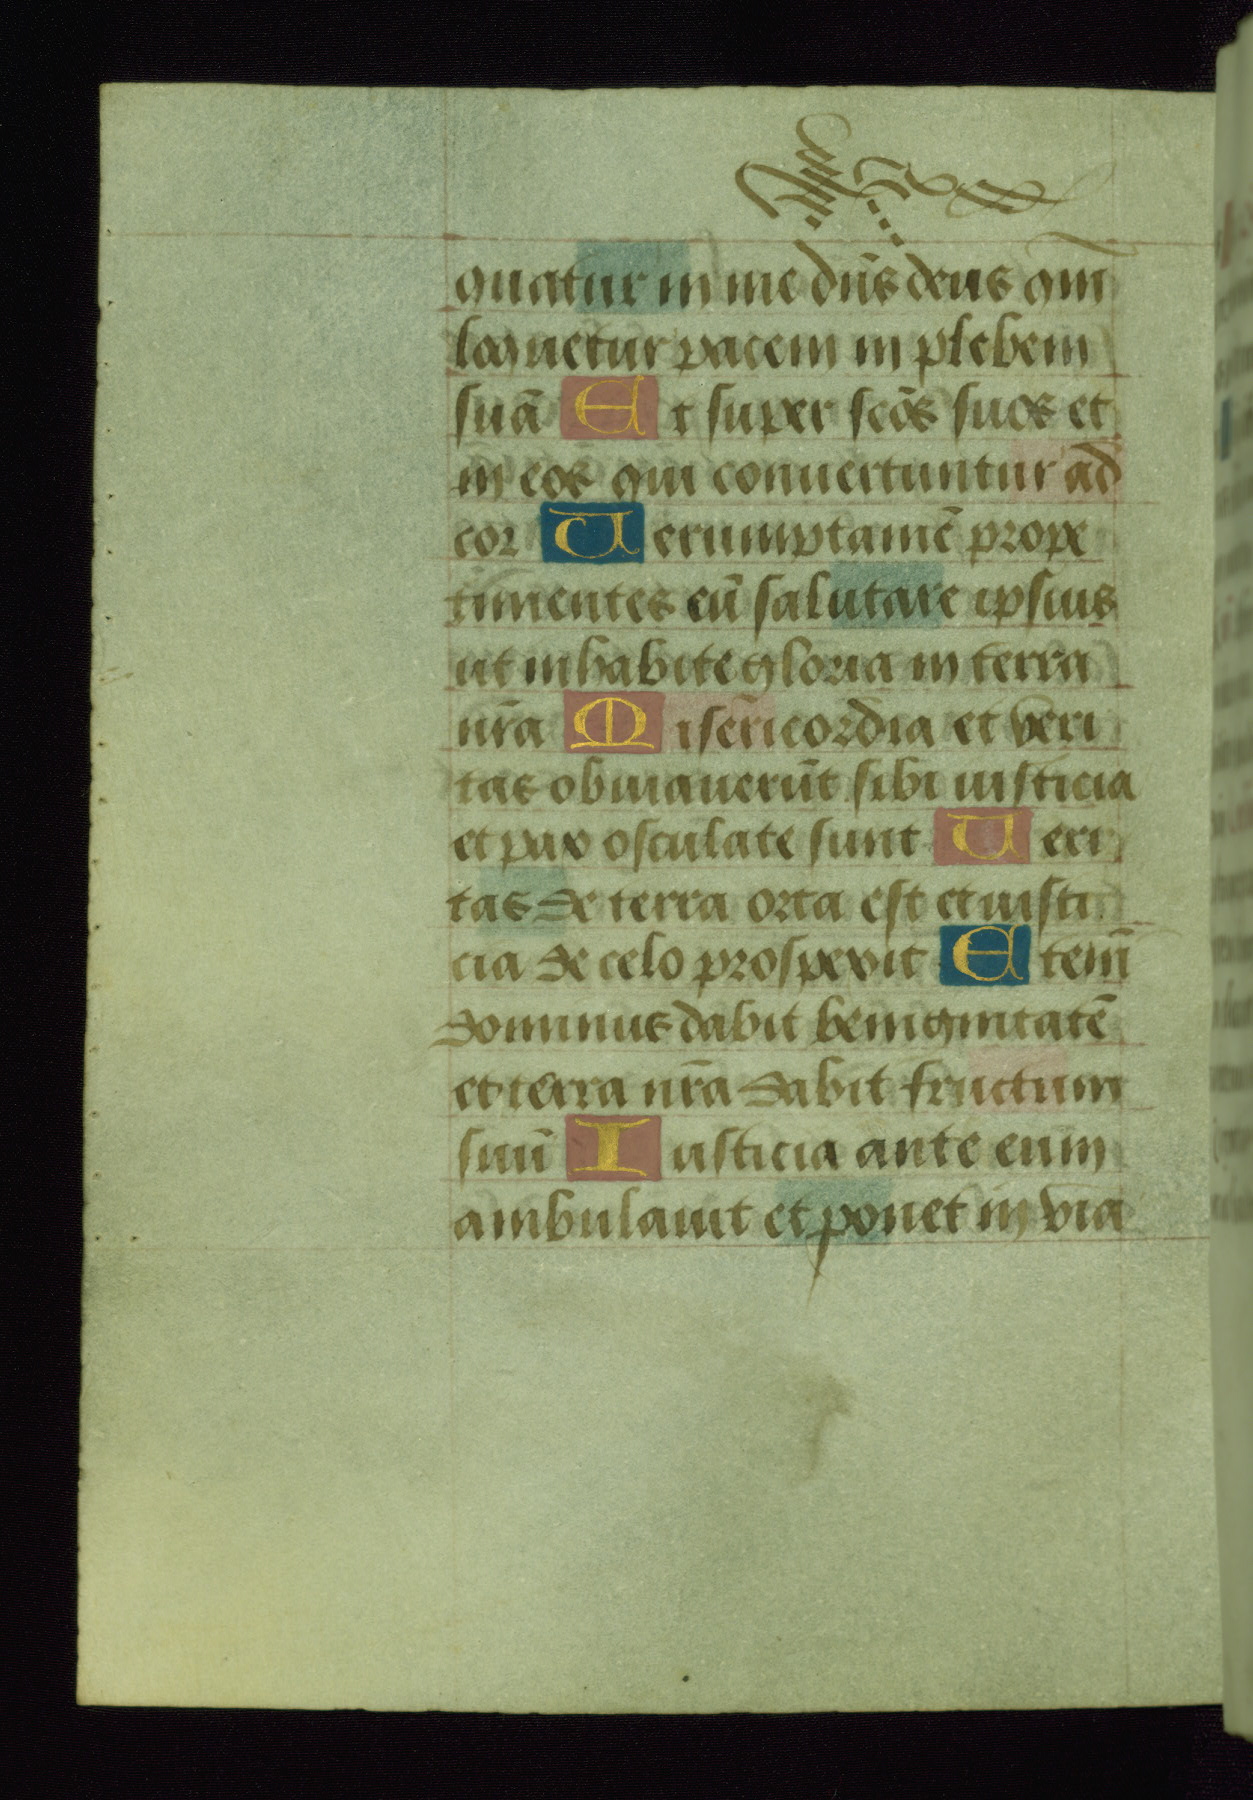 quatur in me dn̄s deus qm̄
loquetur pacem in plebem
suā Et super scōs suos et
in eos qui conuertuntur ad
cor Uerumptamē prope
timentes eū salutare ipsius
ut inhabitet gloria in terra
nr̄a Misericordia et veri
tas obuiauerūt sibi iusticia
et pax osculate sunt Ueri
tas de terra orta est et iusti
cia de celo prospexit Etenī
dominus dabit benignitatē
et terra nr̄a dabit fructum
suū Iusticia ante eum
ambulauit et ponet in via